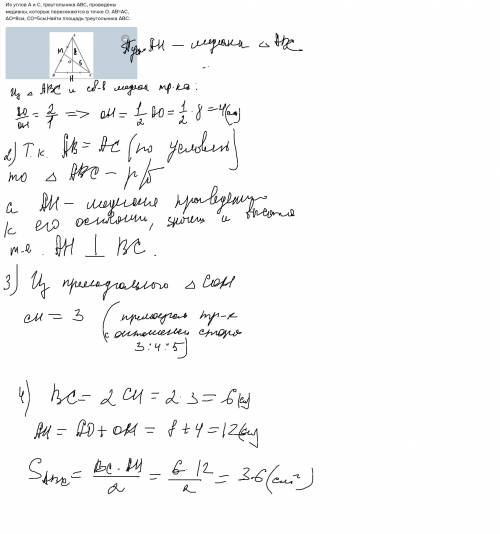 Из углов А и С, треугольника АВС, проведены
медианы, которые пересекаются в точке О. АВ=АС,
АО=8см, СО=5см.Найти площадь треугольника АВС.
M
8
O
5
H
AH – медиана △ ABC
Из △ ABC и св-в медиан тр-ка:
AO/OH = 2/1 => OH = 1/2 AO = 1/2 · 8 = 4(см)
2) Т.к. AB = AC (по условию)
то △ ABC – р/б
а AH – медиана проведенную
к его основанию, значит и высота
т.е. AH ⊥ BC.
3) Из прямоугольного △ COH
CH = 3 (прямоугол тр-к
с отношением сторон
3:4:5)
4) BC = 2 CH = 2·3 = 6(см)
AH = AO + OH = 8 + 4 = 12(см)
S ABC = BC · AH / 2 = 6 · 12 / 2 = 36 (см²)